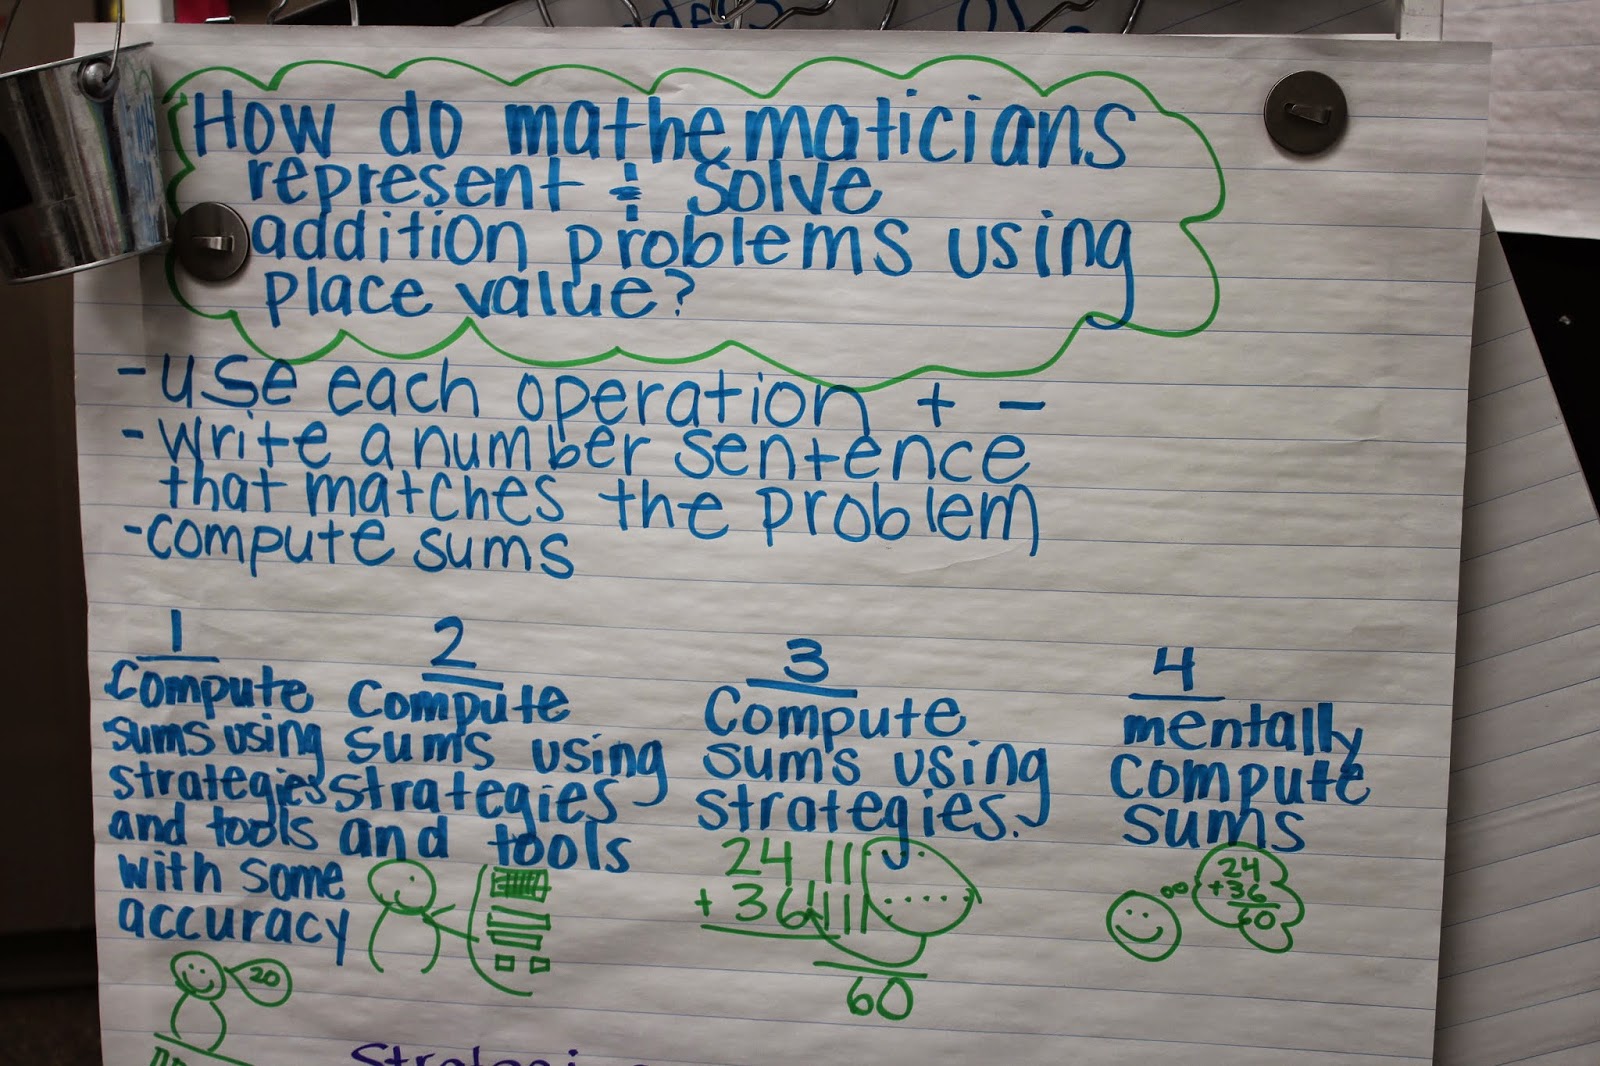 How do mathematicians
represent & solve
addition problems using
place value?
- use each operation + -
- write a number sentence
that matches the problem
- compute sums
1
Compute
sums using
strategies
and tools
with some
accuracy
20
2
Compute
sums using
strategies
and tools
3
Compute
sums using
strategies.
24
+ 36
60
4
mentally
compute
sums
24
+36
60